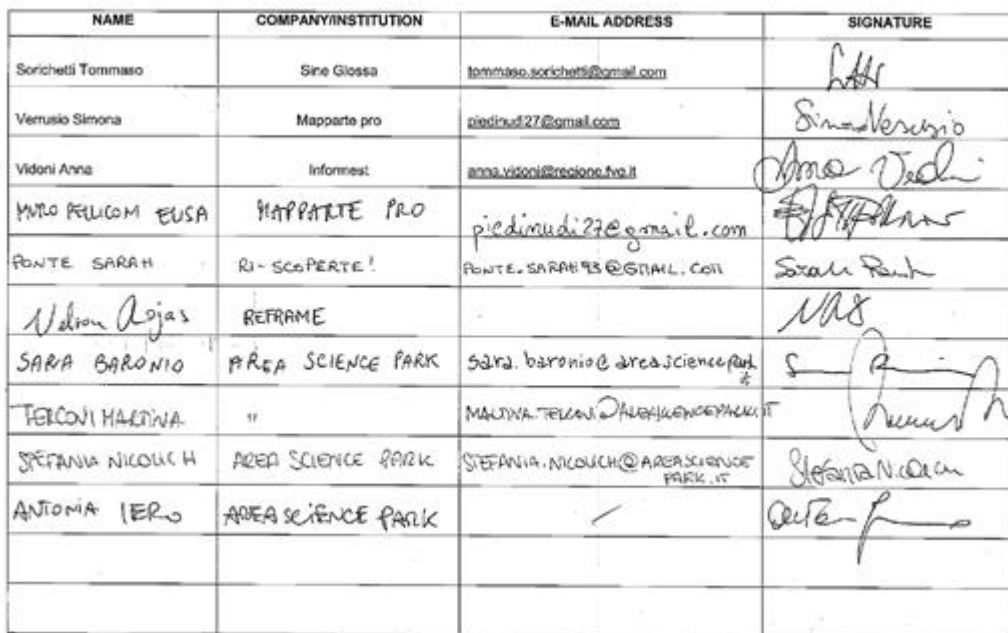 NAME COMPANY/INSTITUTION E-MAIL ADDRESS SIGNATURE
Sorichetti Tommaso Sine Glossa tommaso.sorichetti@gmail.com
Verrusio Simona Mapparte pro piedinudi27@gmail.com
Vidoni Anna Informest anna.vidoni@regione.fvg.it
ELISA MAPPARTE PRO piedinudi27@gmail.com
PONTE SARAH RI-SCOPERTE! PONTE.SARAH93@GMAIL.COM
Nelson Rojas REFRAME
SARA BARONIO AREA SCIENCE PARK sara.baronio@areasciencepark.it
MARTINA "
STEFANIA NICOLICH AREA SCIENCE PARK STEFANIA.NICOLICH@AREASCIENCE
PARK.IT
ANTONIA IERO AREA SCIENCE PARK /